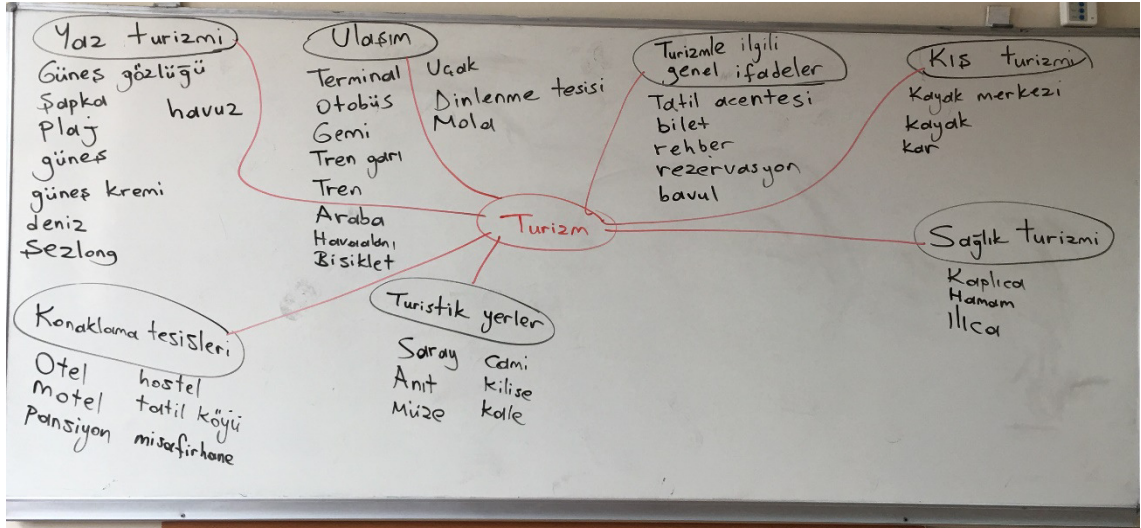 Yaz turizmi
Güneş gözlüğü
Şapka
Plaj
havuz
güneş
güneş kremi
deniz
Şezlong
Ulaşım
Terminal
Otobüs
Gemi
Tren garı
Tren
Araba
Havaalanı
Bisiklet
Uçak
Dinlenme tesisi
Mola
Turizmle ilgili
genel ifadeler
Tatil acentesi
bilet
rehber
rezervasyon
bavul
Kış turizmi
Kayak merkezi
kayak
kar
Turizm
Sağlık turizmi
Kaplıca
Hamam
Ilıca
Konaklama tesisleri
Otel
motel
Pansiyon
hostel
tatil köyü
misafirhane
Turistik yerler
Saray
Anıt
Müze
Cami
kilise
kale